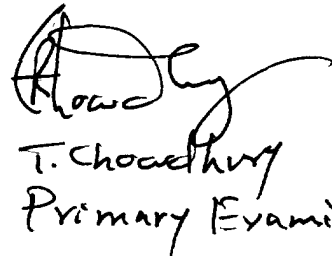 T. Chowdhury
Primary Exami